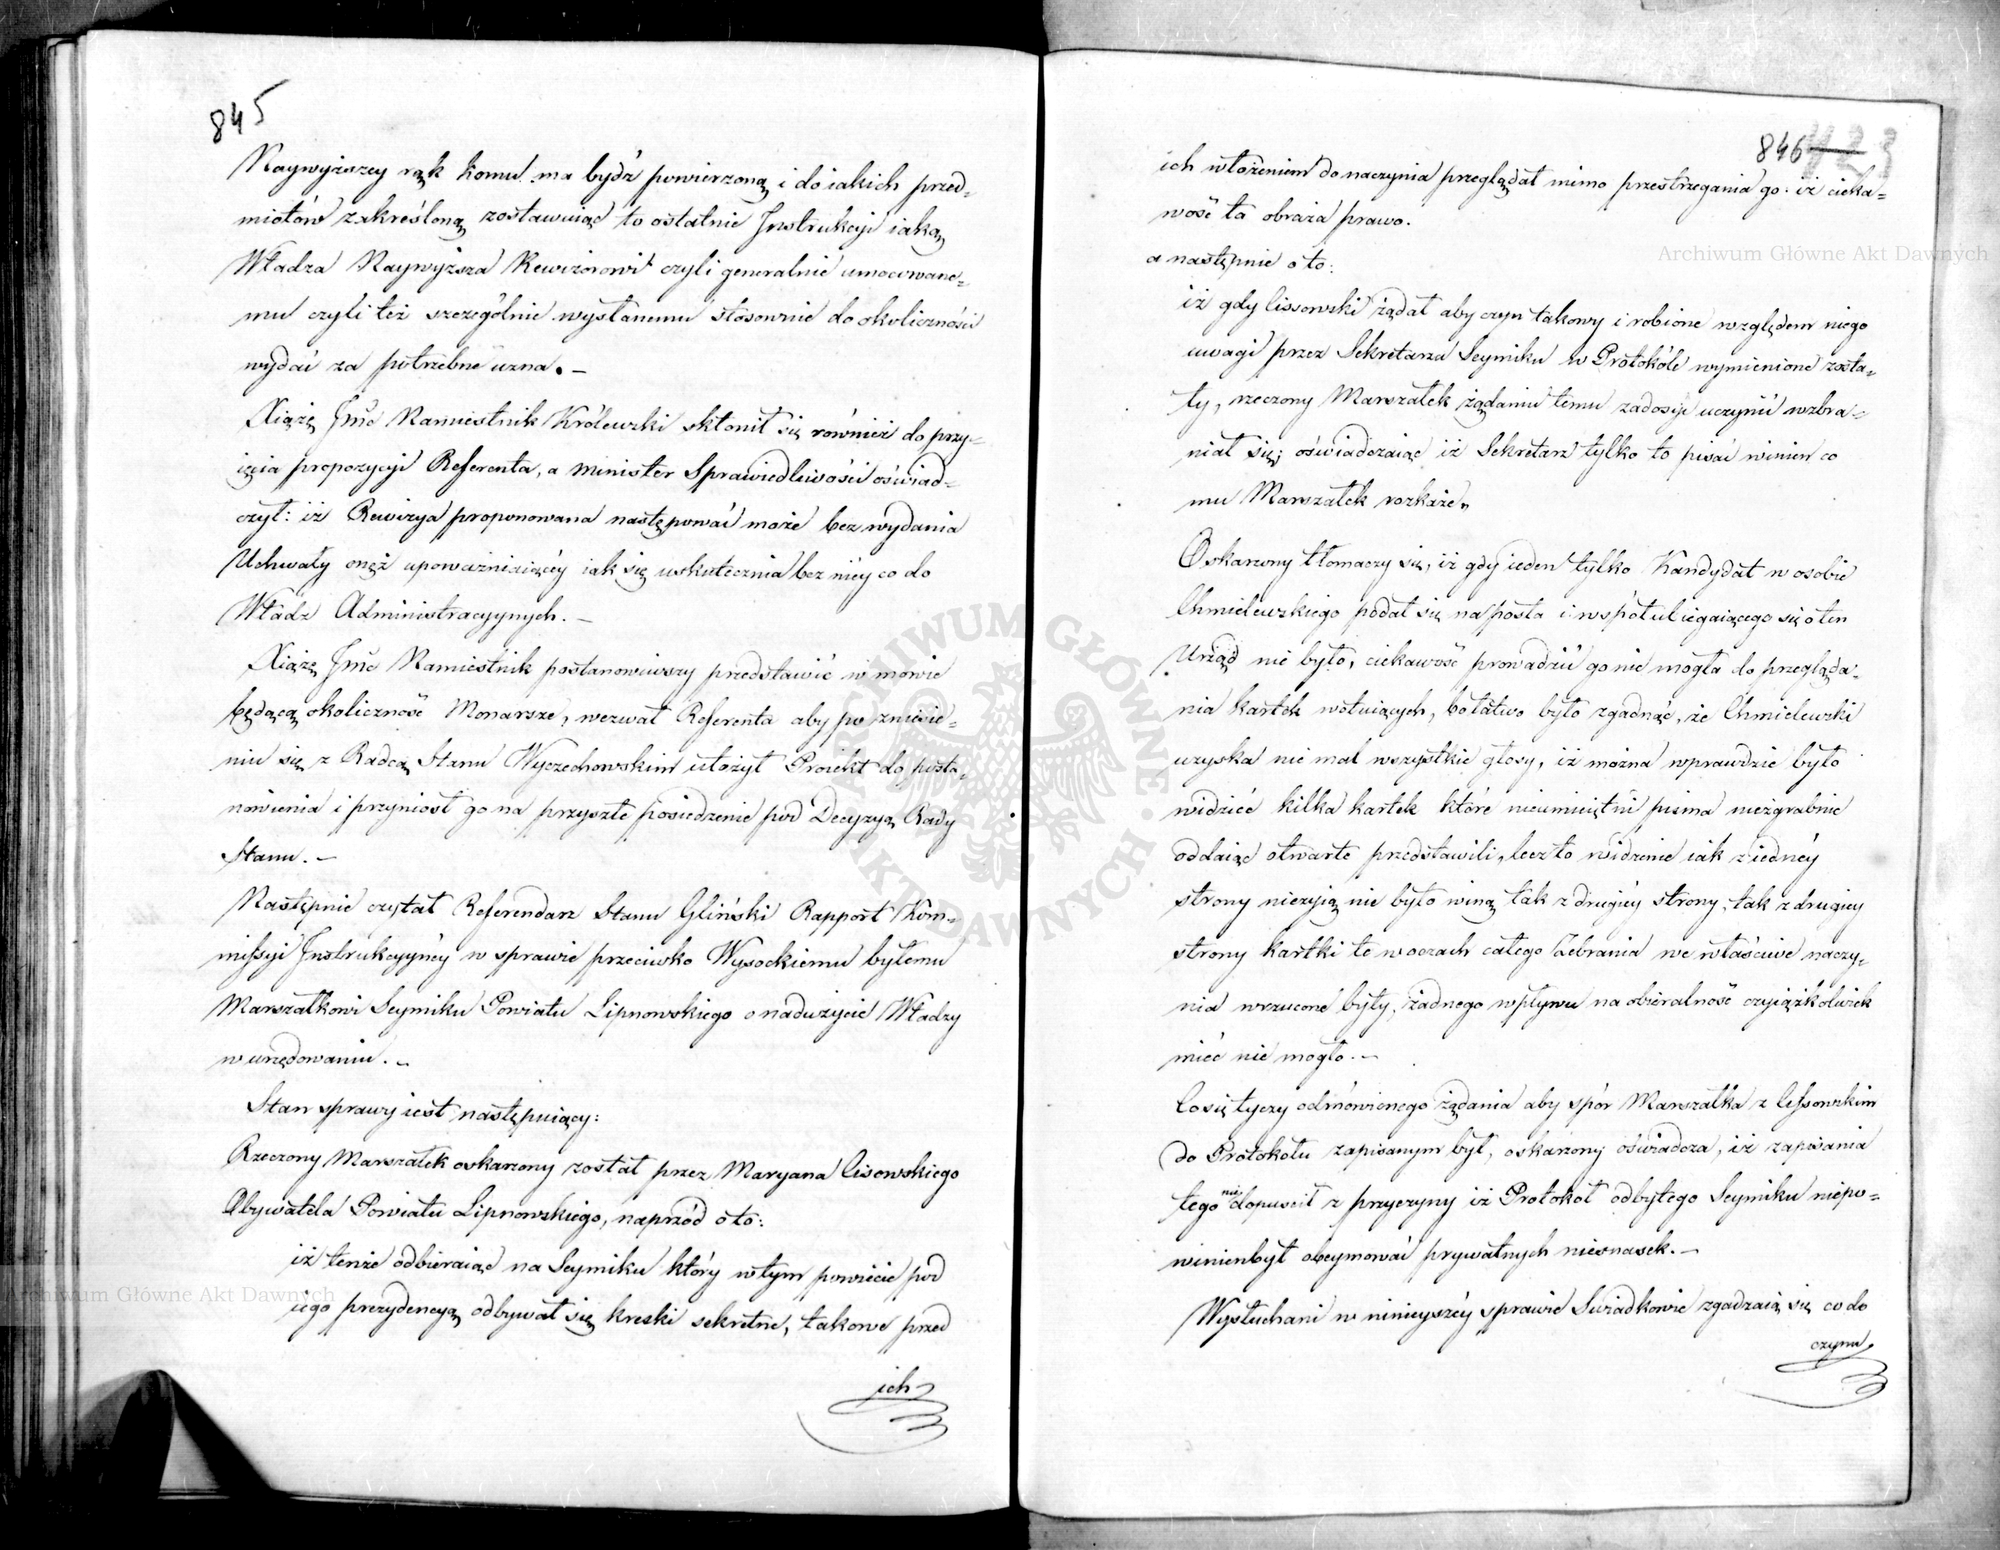 845
Naywyższey rąk komu ma bydź powierzoną i do iakich przed=
miotów zakreśloną zostawuiąc to ostatnie Instrukcyi iaką
Władza Naywyższa Rewizorowi czyli generalnie umocowane=
mu czyli też szczególnie wysłanemu stosownie do okoliczności
wydać za potrzebne uzna. —
Xiążę Jmć Namiestnik Królewski skłonił się również do przy=
ięcia propozycyi Referenta, a Minister Sprawiedliwości oświad=
czył: iż Rewizya proponowana następować może bez wydania
Uchwały onęż upoważniaiącéy iak się uskutecznia bez niéy co do
Władz Administracyynych. —
Xiążę Jmć Namiestnik postanowiwszy przedstawić w mowie
będącą okoliczność Monarsze, wezwał Referenta aby po zniesie=
niu się z Radcą Stanu Wyczechowskim ułożył Proiekt do posta=
nowienia i przyniosł go na przyszłe posiedzenie pod Decyzyą Rady
Stanu. —
Następnie czytał Referendarz Stanu Gliński Rapport Kom=
missyi Instrukcyynéy w sprawie przeciwko Wysockiemu byłemu
Marszałkowi Seymiku Powiatu Lipnowskiego o nadużycie Władzy
w urzędowaniu. —
Stan sprawy iest następuiący:
Rzeczony Marszałek oskarzony został przez Maryana Lisowskiego
Obywatela Powiatu Lipnowskiego, naprzód o to:
iż tenże odbieraiąc na Seymiku który w tym powiecie pod
iego prezydencyą odbywał się kreski sekretne, takowe przed
ich
846 423
ich włożeniem do naczynia przeglądał mimo przestrzegania go: iż cieka=
wość ta obraża prawo.
a następnie o to:
iż gdy Lissowski żądał aby czyn takowy i robione względem niego
uwagi przez Sekretarza Seymiku w Protokóle wymienione zosta=
ły, rzeczony Marszałek żądaniu temu zadosyć uczynić wzbra=
niał się; oświadczaiąc iż Sekretarz tylko to pisać winien co
mu Marszałek rozkaże„
Oskarzony tłomaczy się, iż gdy ieden tylko Kandydat w osobie
Chmielewskiego podał się na posła i współubiegaiącego się o ten
Urząd nie było, ciekawość prowadzić go nie mogła do przegląda=
nia kartek wotuiących, bo łatwo było zgadnąć, że Chmielewski
uzyska nie mal wszystkie głosy, iż można wprawdzie było
widzieć kilka kartek które nieumieiętni pisma niezgrabnie
oddaiąc otwarte przedstawili, lecz to widzenie iak z iednéy
strony niczyią nie było winą tak z drugiéy strony, tak z drugiey
strony kartki te w oczach całego Zebrania we właściwe naczy=
nia wrzucone były, żadnego wpływu na obieralność czyiążkolwiek
mieć nie mogło. —
Co się tyczy odmówionego żądania aby spór Marszałka z Lissowskim
do Protokołu zapisanym był, oskarzony oświadcza, iż zapisania
tego nie dopuścił z przyczyny iż Protokół odbytego Seymiku niepo=
winien był obeymować prywatnych niesnasek. —
Wysłuchani w ninieyszéy sprawie Swiadkowie zgadzaią się co do
czynu
Archiwum Główne Akt Dawnych
Archiwum Główne Akt Dawnych
ARCHIWUM GŁÓWNE · AKT DAWNYCH ·